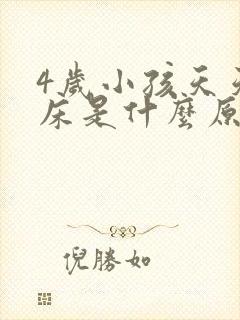 4歲小孩天天
床是什麼原
倪勝如